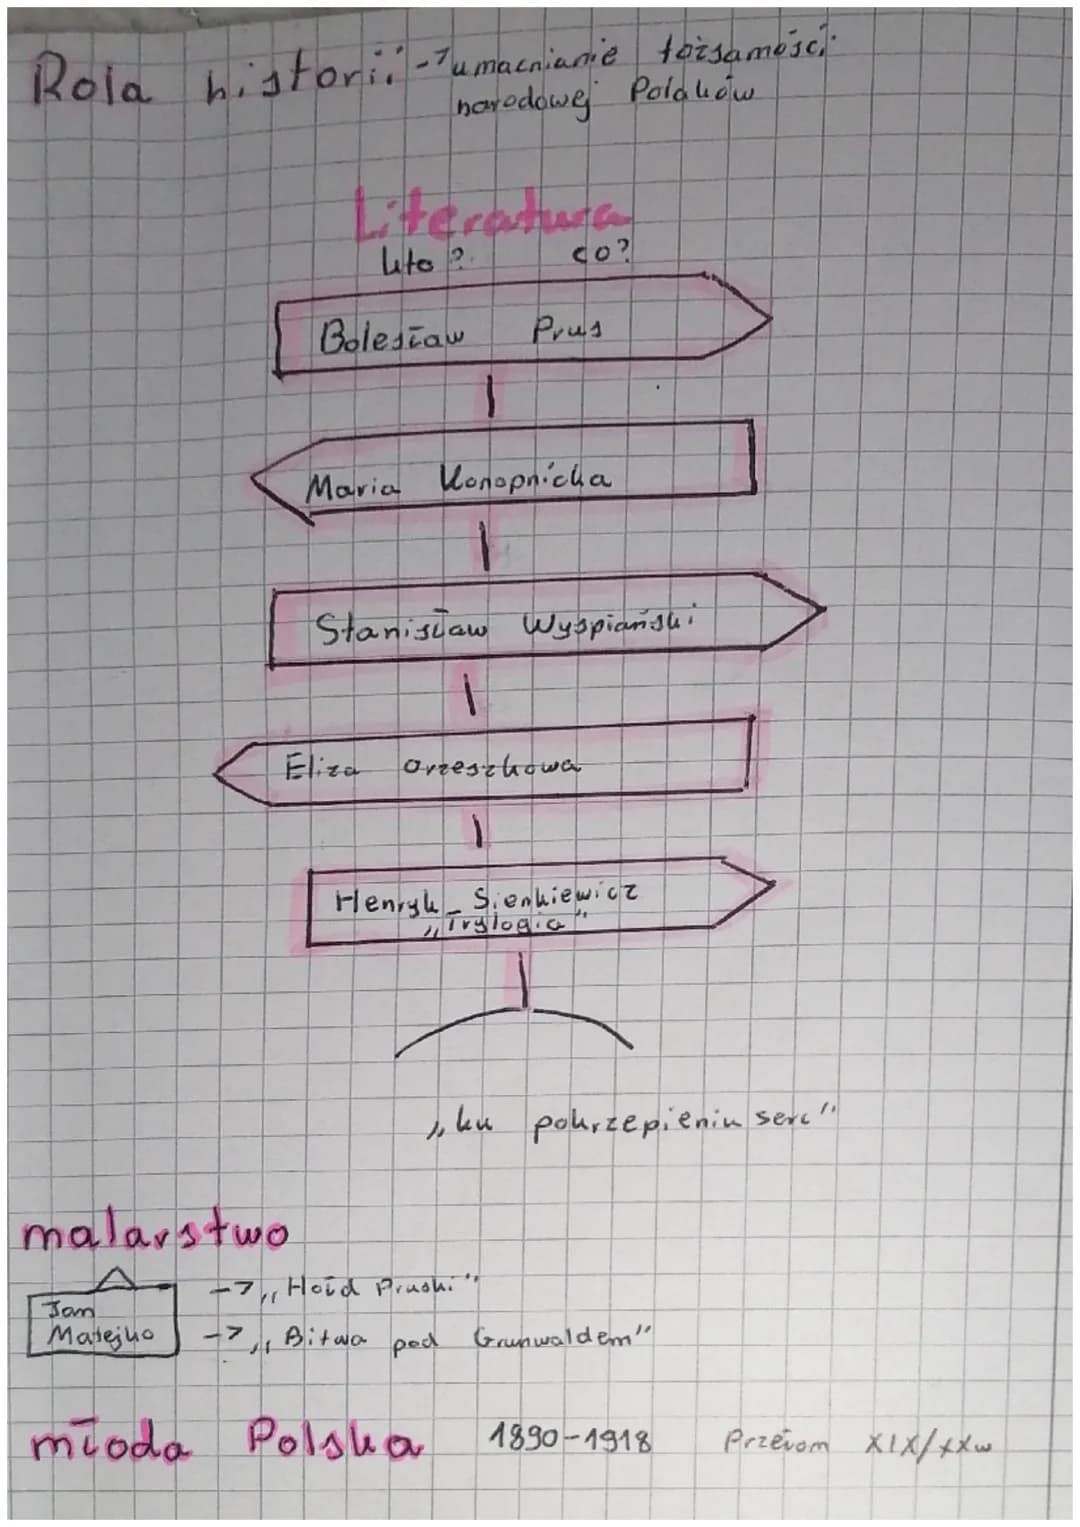 Rola historii -> umacnianie tożsamości
narodowej Polaków
Literatura
kto? co?
Bolesław Prus
Maria Konopnicka
Stanisław Wyspiański
Eliza Orzeszkowa
Henryk Sienkiewicz
„Trylogia"
„ku pokrzepieniu serc"
malarstwo
Jan
Matejko
-> „Hołd Pruski"
-> „Bitwa pod Grunwaldem"
młoda Polska 1890-1918 Przełom XIX/XXw